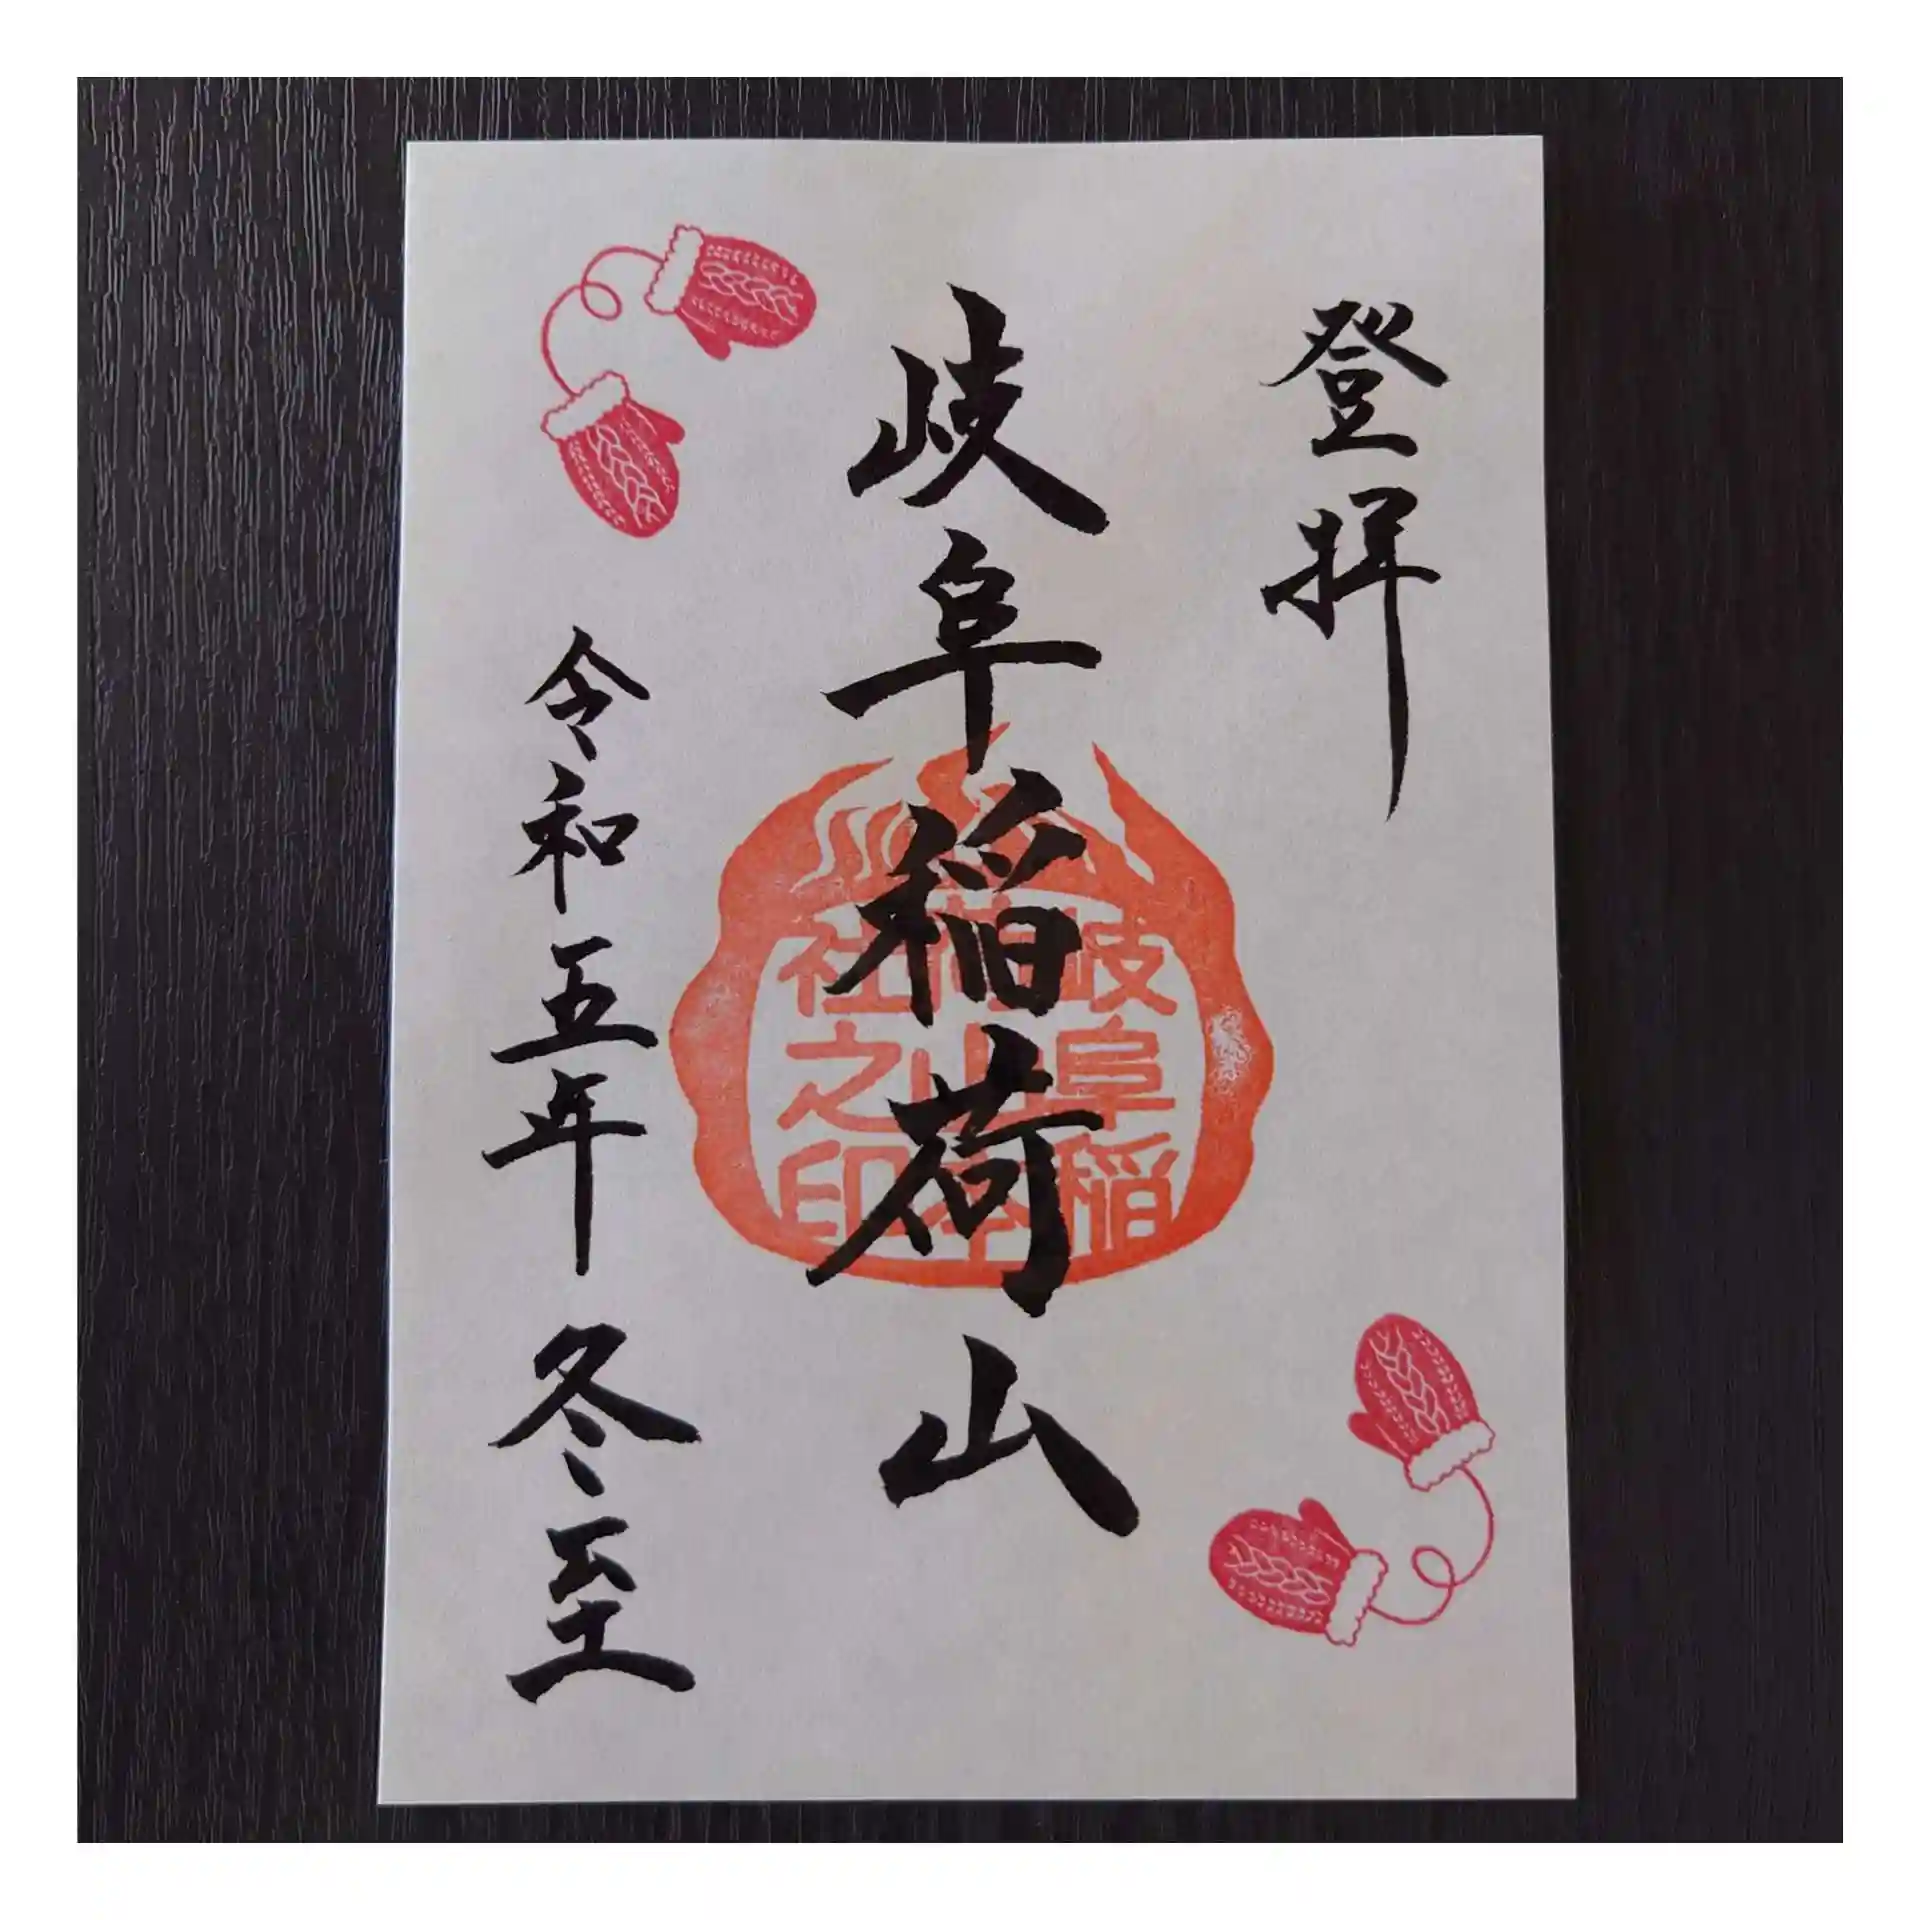 登拝
岐阜稲荷山
令和五年 冬至
岐阜稲
荷山本
社之印